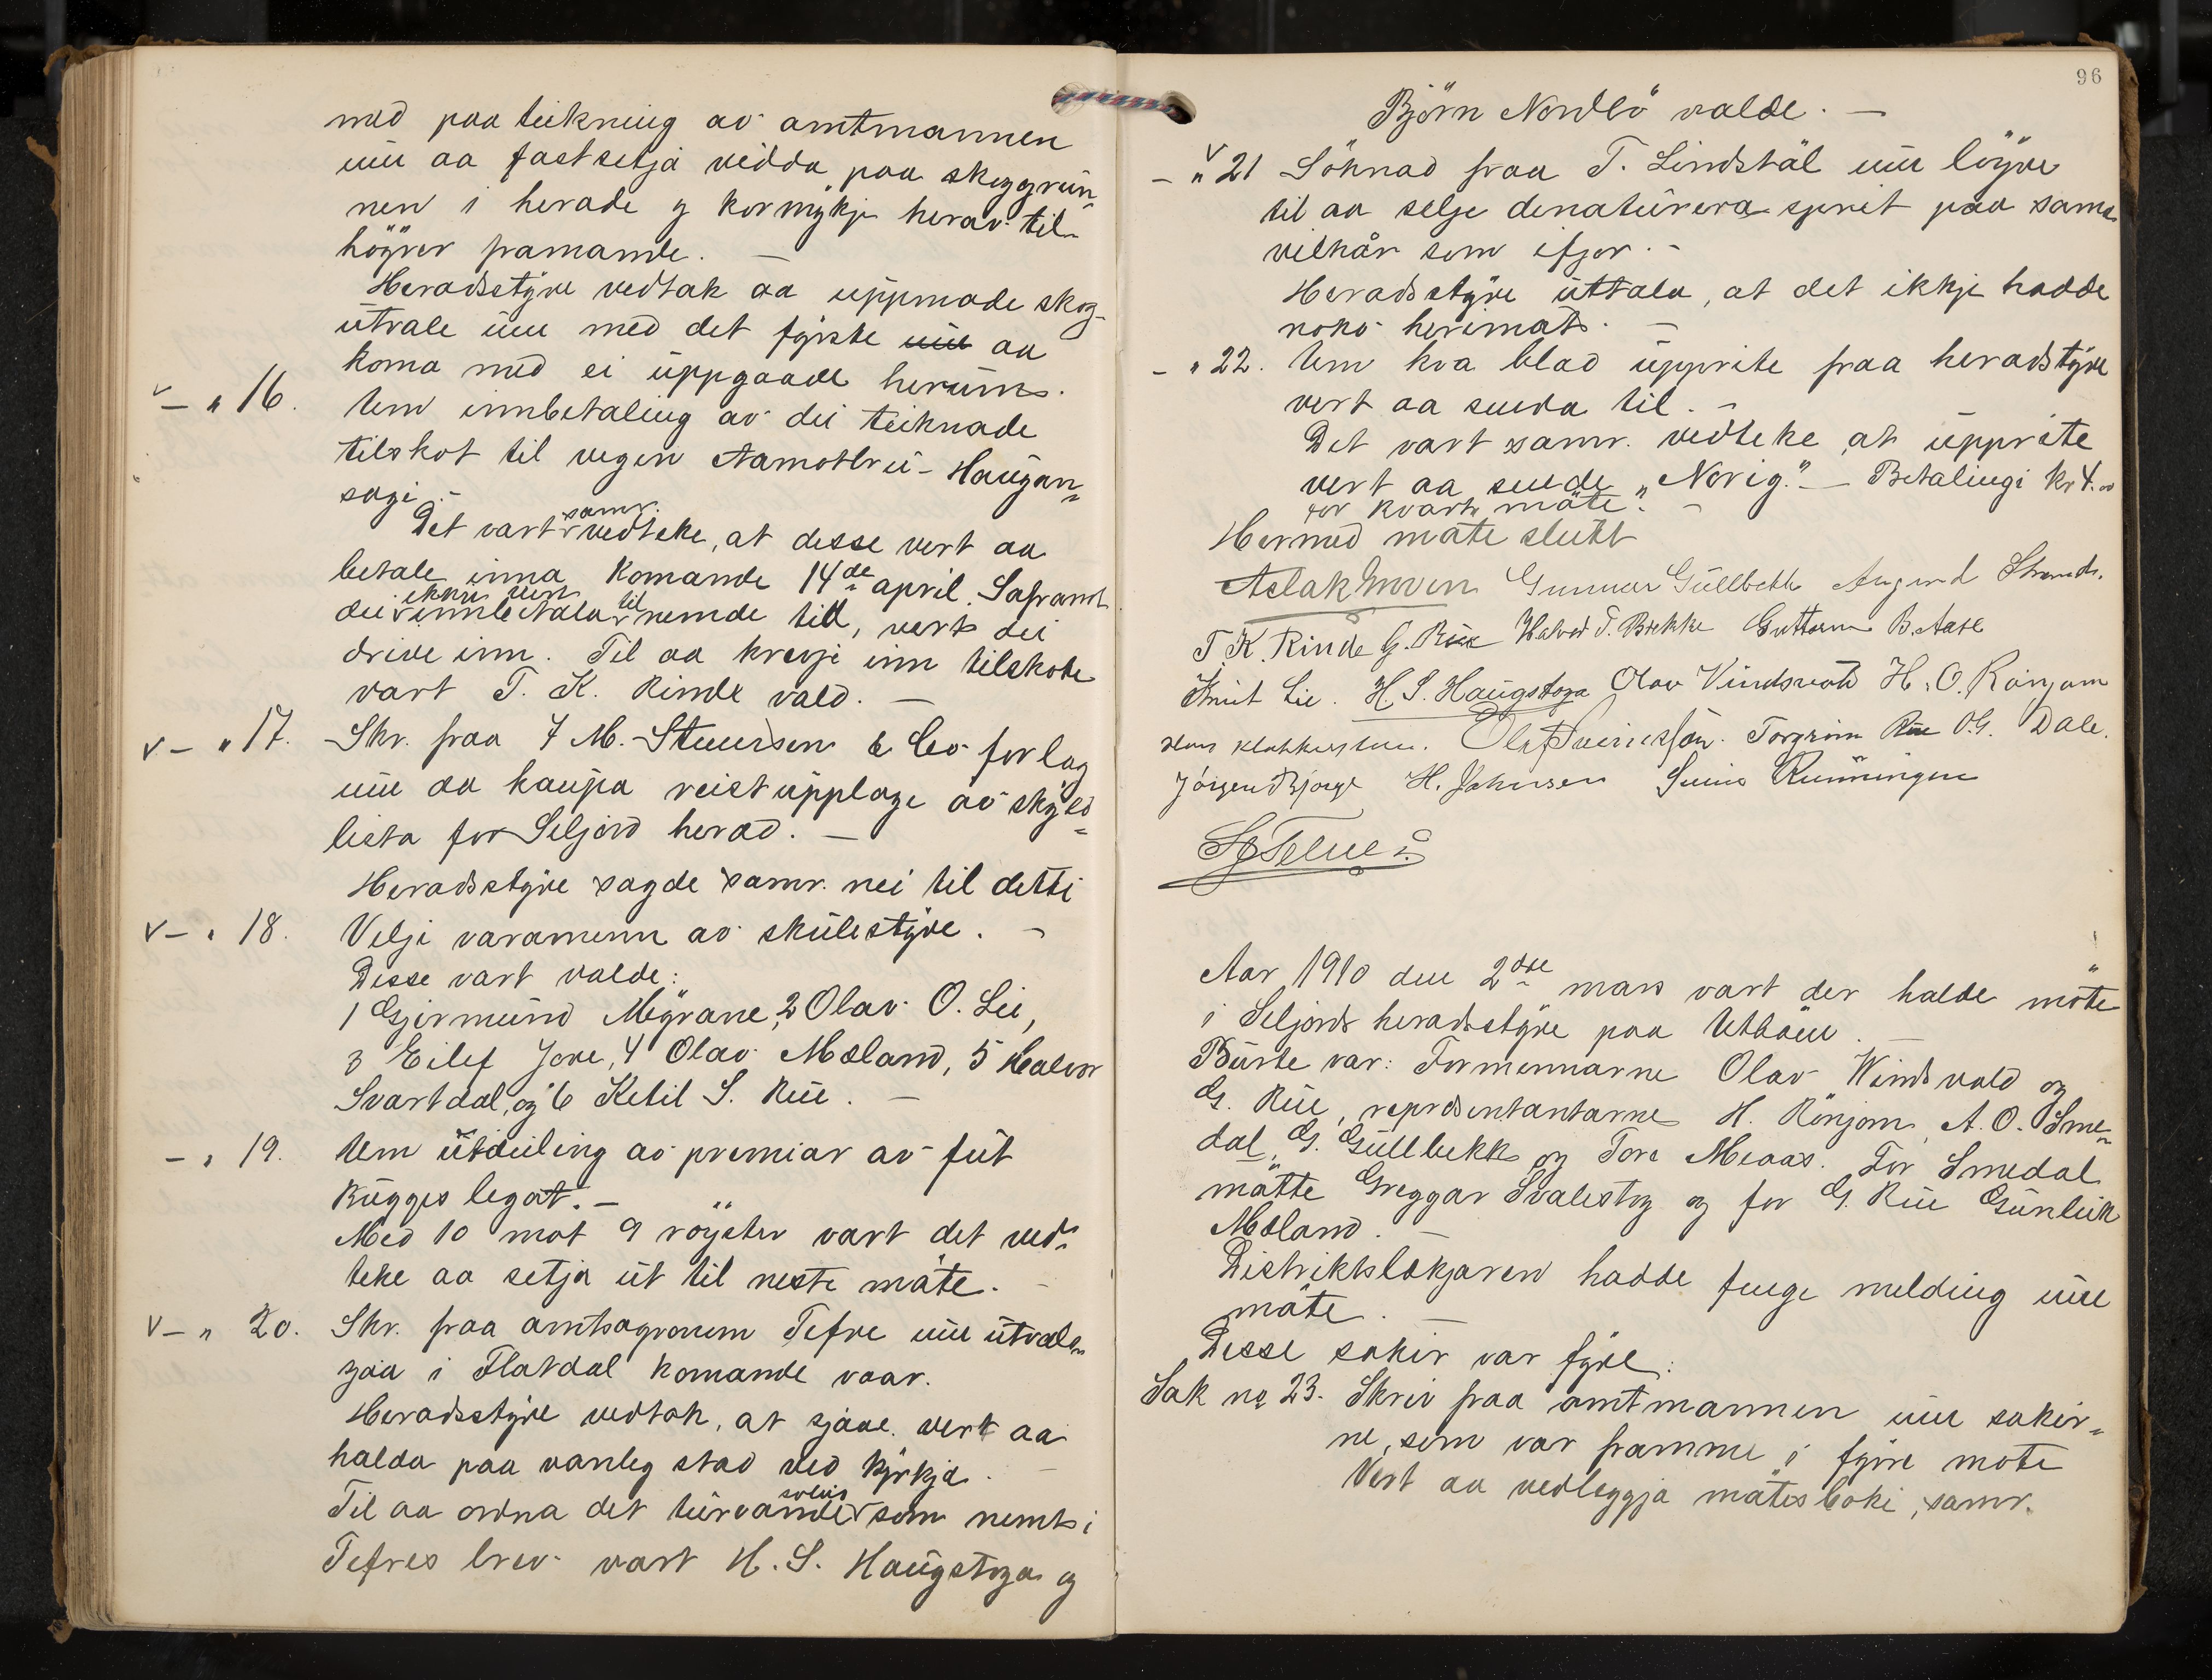 med paa teikning av amtmannen
um aa fastsetja vidda paa skoggrun-
nen i herade og kormykje herav til-
höyrer framande. —
Heradsstyre vedtak aa uppmode skog-
utvale um med det fyrste um aa
koma med ei uppgaade herum.
v – „ 16. Um innbetaling av dei teiknade
tilskot til vegen Aamotbru – Haugan-
sagi. –
Det vart samr. vedteke, at desse vert aa
betale inna komande 14de april. Saframt
dei ikkje vert innbetala til nemde tid, verts dei
drive inn. Til aa krevje inn tilskote
vart T. K. Rinde vald. —
v – „ 17. Skr. fraa M. Stenersen & Co forlag
um aa kaupa reistupplage av skyld-
lista for Seljord herad. —
Heradsstyre sagde samr. nei til detti
v – „ 18. Velje varamenn av skulestyre. –
Desse vart valde:
1 Gjermund Mygrane, 2 Olav O. Lii,
3 Eilef Jore, 4 Olav Mæland, 5 Halvor
Svartdal, og 6 Ketil S. Rue. —
– „ 19. Um utdeiling av premiar av fut
Rugges legat. –
Med 10 mot 9 röyster vart det ved-
teke aa setja ut til neste möte. –
v – „ 20. Skr. fraa amtsagronom Tefre um utvals-
sjaa i Flatdal komande vaar.
Heradsstyre vedtok, at sjaae vert aa
halda paa vanleg stad ved kyrkja. —
Til aa ordna det turvande soleis som nemt i
Tefres brev vart H. S. Haugstoga og
96
Björn Nordbö valde. —
v
– „ 21 Söknad fraa T. Lindstäl um löyve
til aa selje denaturera sprit paa same
vilkår som ifjor. –
Heradsstyre uttala, at det ikkje hadde
noko herimot. —
– „ 22. Um kva blad upprite fraa heradstyre
vert aa senda til. –
Det vart samr. vedteke at upprite
vert aa sende „Norig." — Betalingi kr 4.00
for kvart möte. –
Hermed möte slutt
Aslak Moen Gunnar Gullbekk Augund Strand.
T. K. Rinde G. Rue Halvod T. Brekke Guttorm B. Aase
Knut Lie. H. S. Haugstoga Olav Vindsvold H. O. Rönjom
Olav Sveinsson. Torgrim Rue O. G. Dale.
Jörgen Bjorge H. Johnsen Svein Runningen
Aar 1910 den 2dre mars vart der halde möte
i Seljords heradsstyre paa Utböen. —
Burte var: Formennarne Olav Windsvold og
G. Rue, representantarne H. Rönjom, A. O. Sme-
dal, G. Gullbekk og Tore Meaas. For Smedal
mötte Greggar Svalestog og for G. Rue Gunleik
Mæland. —
Distriktslækjaren hadde fenge melding um
möte. —
Desse sakir var fyre:
Sak no 23. Skriv fraa amtmannen um sakir-
ne, som var framme i fyrre möte
Vert aa vedleggja mötesboki, samr.